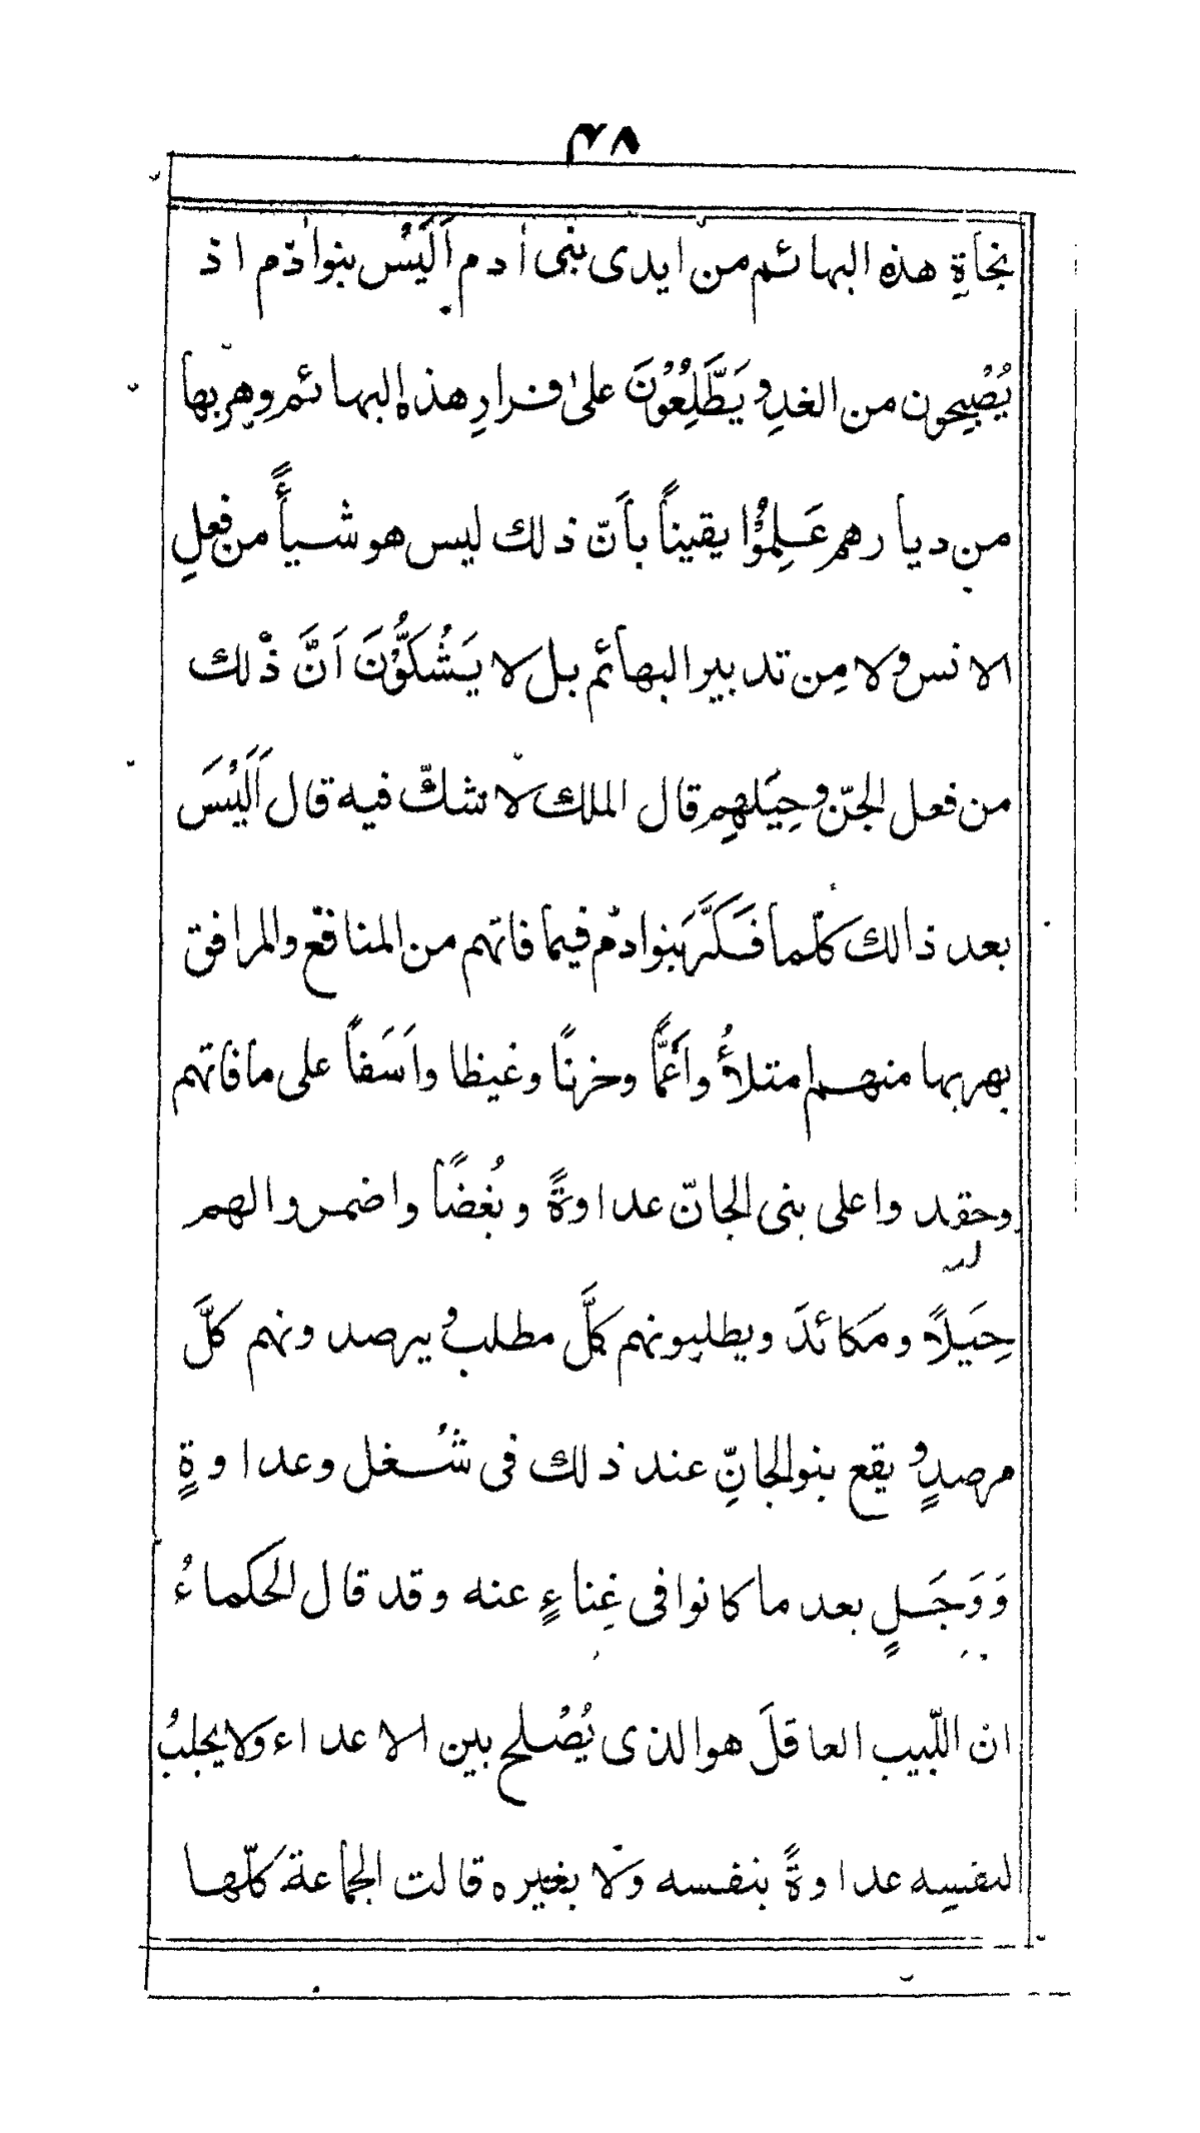 ٤٨
نجاةِ هذه البهائم من ايدى بنى اٰدم اَلَيْسُ بنواٰدم اذ
يُصْبِحون من الغدِ و يَطَّلِعُوْنَ علىٰ فرارِ هذه البهائم وهربها
من ديارهم عَلِمُوْا يقيناً بأنّ ذلك ليس هو شيأً من فعلِ
الانس ولا مِن تدبير البهائم بل لا يَشُكُّوْنَ اَنَّ ذٰلك
من فعل الجنّ و حِيَلهِم قال الملك لا شكّ فيه قال اَلَيْسَ
بعد ذالك كلّما فَكَّرَ بنوادم فيما فاتهم من المنافع والمرافق
بهربها منهم امتلأُ واغَمًّا وحزنًا وغيظا واَسَفاً على ما فاتهم
وحقد واعلى بنى الجانّ عداوةً و بُغضًا واضمروا لهم
حِيَلاً ومَكائدَ ويطلبونهم كلَّ مطلب و يرصدونهم كلَّ
مرصدٍ و يقع بنوالجانِّ عند ذلك فى شُغل وعداوةٍ
وَوَجَلٍ بعد ما كانوا فى غِناءٍ عنه وقد قال الحكماءُ
ان اللّبيب العاقلَ هوالذى يُصْلح بين الاعداء ولا يجلبُ
لنفسِه عداوةً بنفسه ولا بغيره قالت الجماعة كلّها